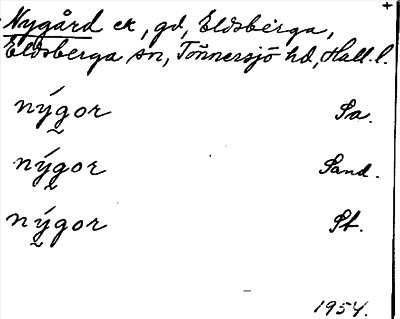 +
Nygård ek, gd, Eldsberga,
Eldsberga sn, Tönnersjö hd, Hall. l.
nýgor Sa.
nýgor Sand.
nýgor St.
1954.